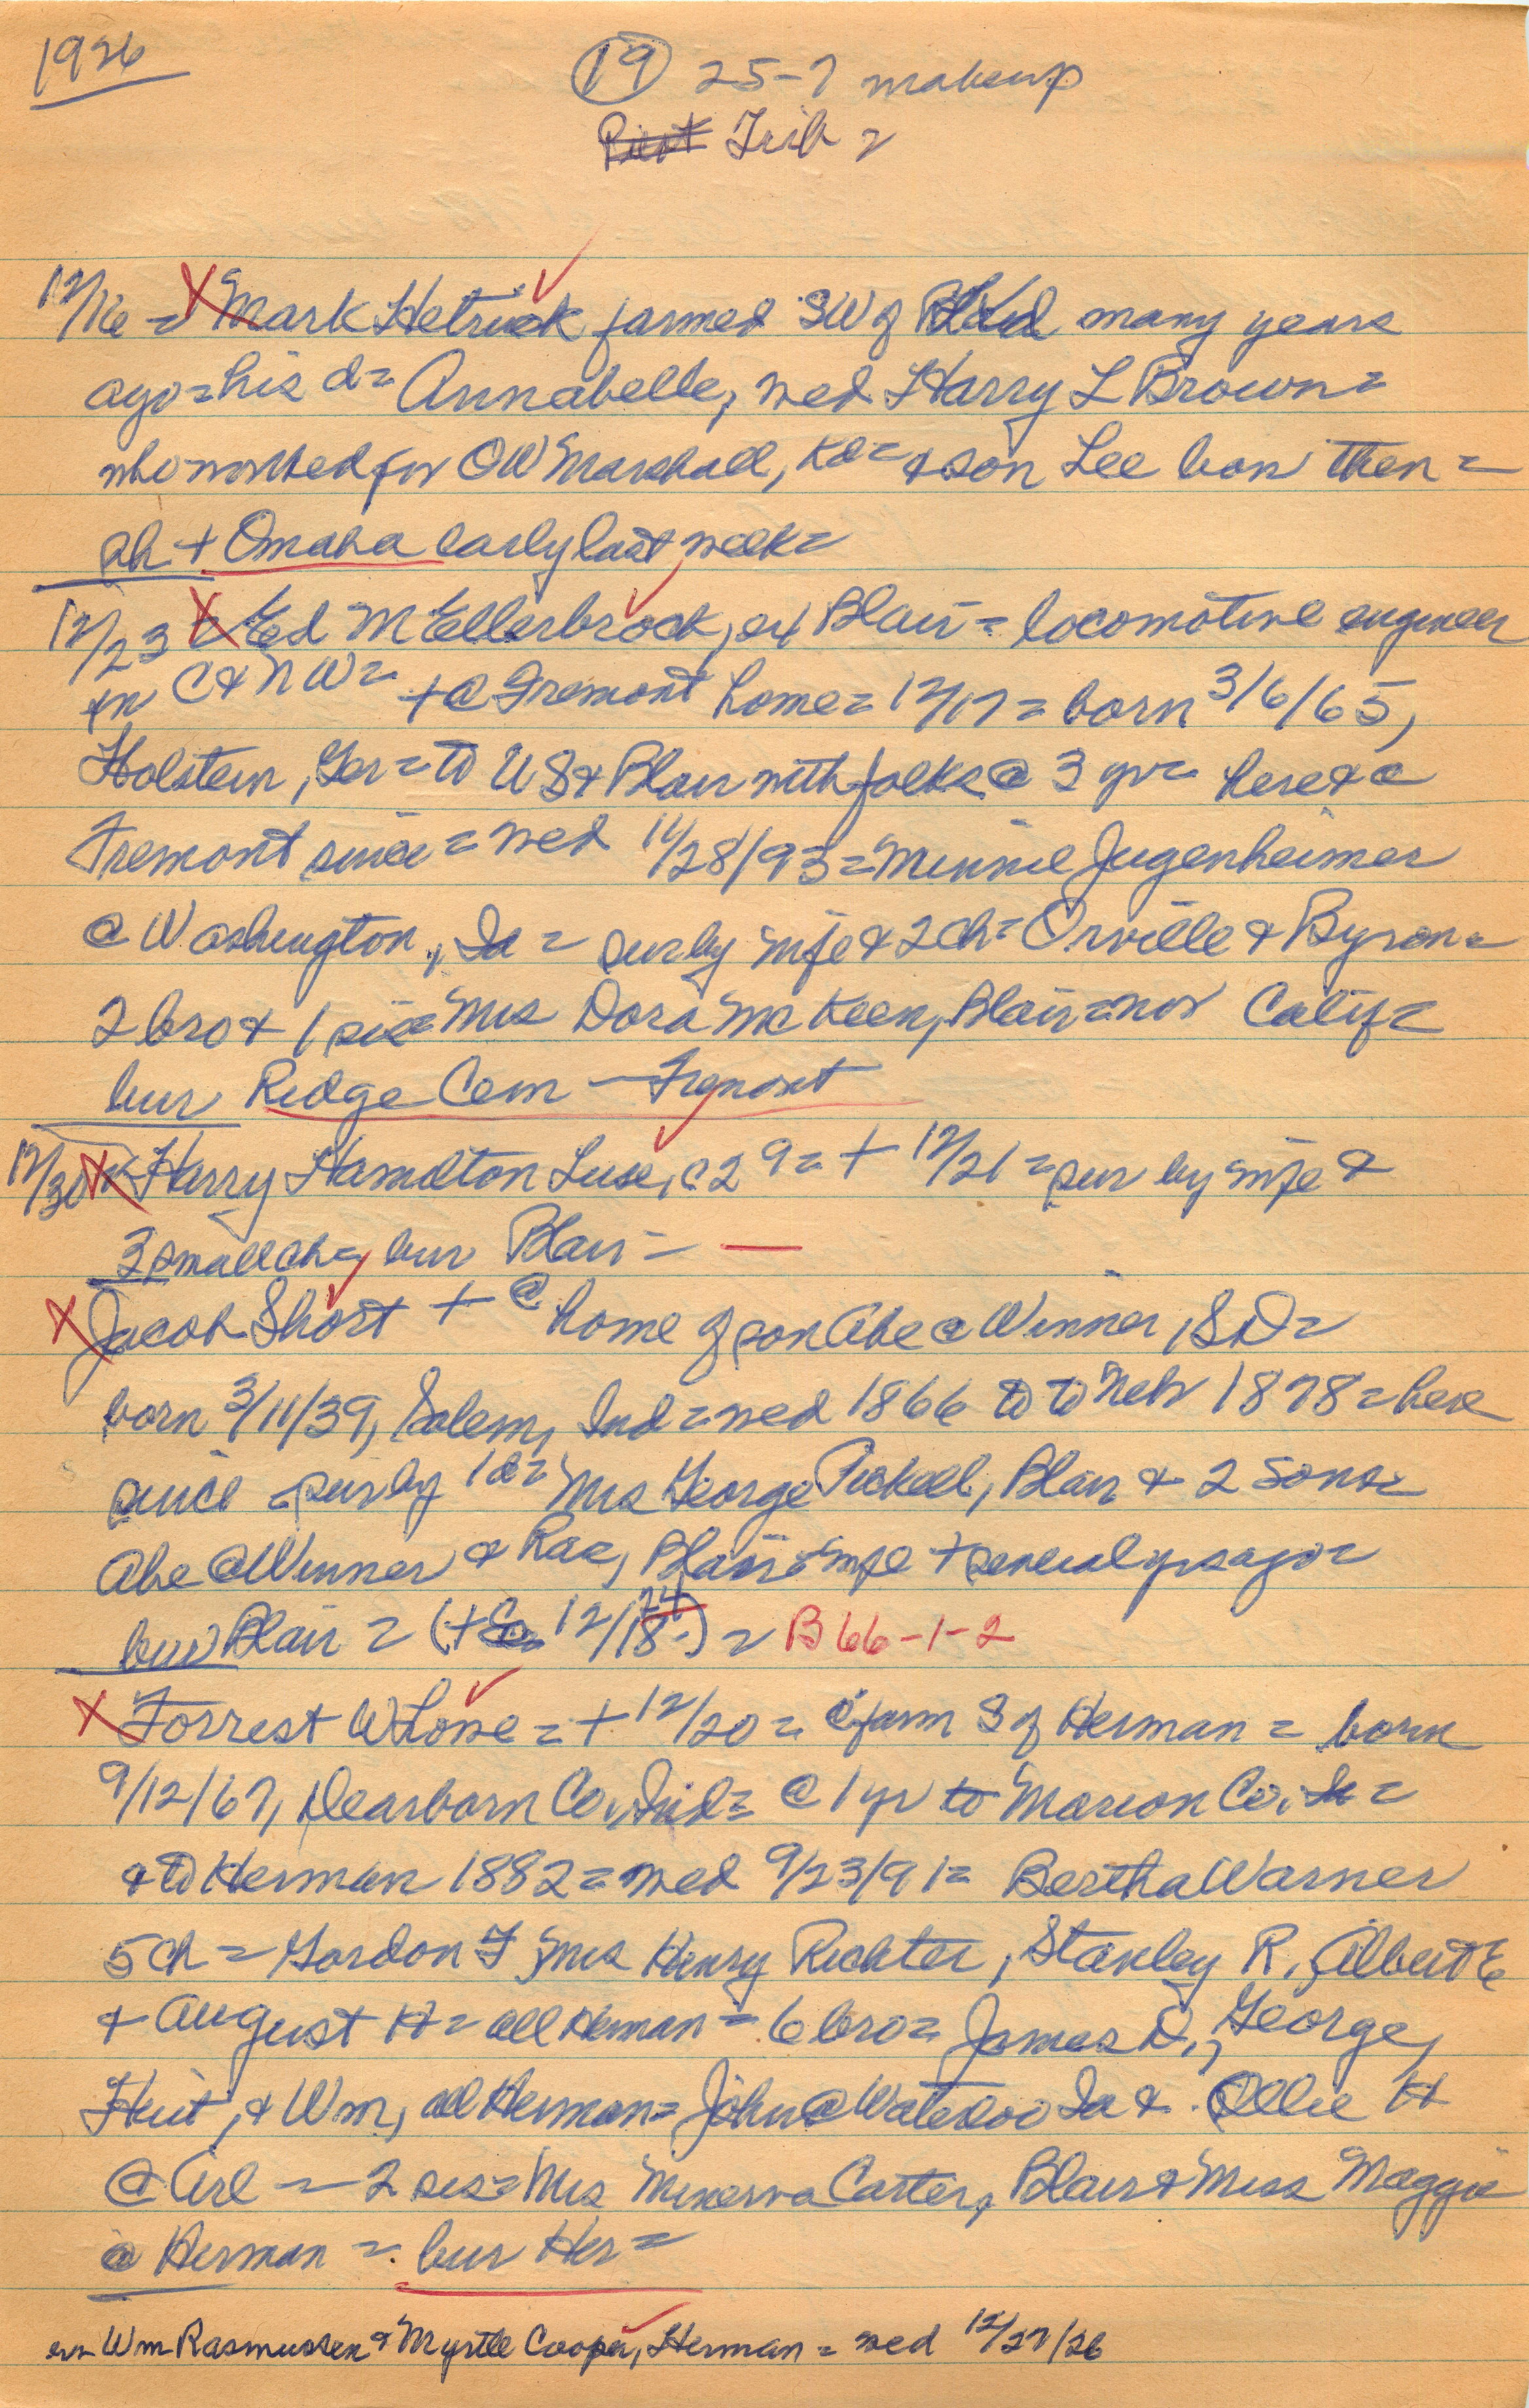 1926
(19) 25-7 makeup
Pilot Trib =
12/16 = X Mark Hetrick farmed SW of many years
ago = his d = Annabelle, wed Harry L Brown =
who worked for OW Marshall, = & son Lee born then =
+ Omaha early last week =
12/23 X Ed M Ellerbrock, ex Blair = locomotive engineer
on C & NW = + @ Fremont home = 12/17 = born 3/6/65,
Holstein, Ger = to US & Blair with folks @ 3 yr = here & @
Fremont since = wed 11/28/93 = Minnie Jugenheimer
@ Washington, Ia = sur by wife & 2 ch = Orville & Byron =
2 bro & 1 sis = Mrs Dora McKeen, Blair = now Calif =
bur Ridge Cem — Fremont
12/30 X Harry Hamilton Luse, c29 = + 12/21 = sur by wife &
3 small ch = bur Blair = —
X Jacob Short + @ home of son Abe @ Winner, SD =
born 3/11/39, Salem, Ind = wed 1866 to to Neb 1878 = here
since = sur by 1 d = Mrs George Pickell, Blair & 2 sons =
Abe @ Winner & Rae, Blair = wife + several yrs ago =
bur Blair = (+ 12/18 24) = B 66-1-2
X Forrest W Lowe = + 12/20 = @ farm S of Herman = born
9/12/67, Dearborn Co, Ind = @ 1 yr to Marion Co, Ia =
& to Herman 1882 = wed 9/23/91 = Bertha Warner
5 ch = Gordon F, Mrs Henry Richter, Stanley R, Albert E
& August H = all Herman = 6 bro = James D., George,
& Wm, all Herman = John @ Waterloo Ia & Ollie H
@ Arl — 2 sis = Mrs Minerva Carter, Blair & Miss Maggie
@ Herman = bur Her =
Wm Rasmussen & Myrtle Cooper, Herman = wed 12/27/26